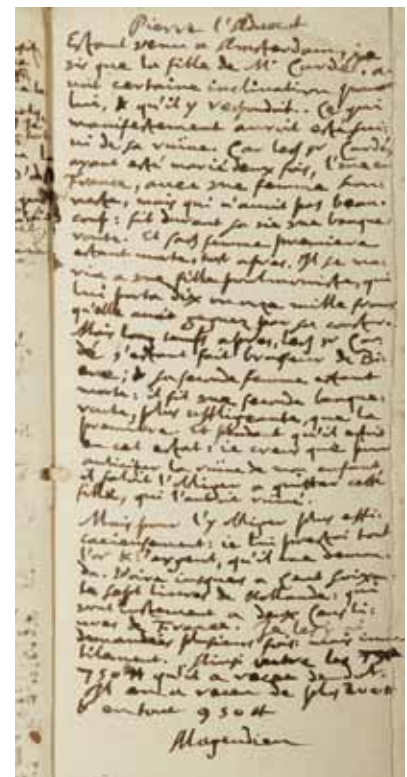 Pierre l'Advocat
Estant venu a Amsterdam, je
vis que la fille de Mr Cardé. a
une certaine inclination pour
lui, & qu'il y respondoit. Ce qui
manifestement auroit esté sui
vi de sa ruine. Car led. Sr Cardé
ayant esté marié deux fois, l'une en
France, avec une femme hon
neste, mais qui n'avoit pas beau
coup: fit durant sa vie une banque
route. Et sad. femme premiere
estant morte, tost apres. Il se ma
ria a une fille qui
lui porta dix mille francs
qu'elle avoit gagnez par sa
Mais long temps apres, led. Sr Car
dé s'estant fait brasseur de Bi
ere; & sa seconde femme estant
morte: il fit une seconde banque
route, plus affligeante, que la
premiere. Et pendant qu'il estoit
en cet estat: ie creus que pour
anticiper la ruine de mon enfant,
il faloit l'obliger a quitter cette
fille, qui l'auroit ruiné.
Mais pour l'y obliger plus effi
cacieusement: ie lui prestai tout
l'or & l'argent, qu'il me deman
da. Voire iusques a Cent soixan
te sept livres de Hollande: qui
sont iustement a deux Cens li
vres de France. Je les
demandées plusieurs fois: mais inu
tilement. Ainsi outre les
750 ₶ qu'il a receu
Il en a receu de plus 200 ₶
en tout 950 ₶
Magendien